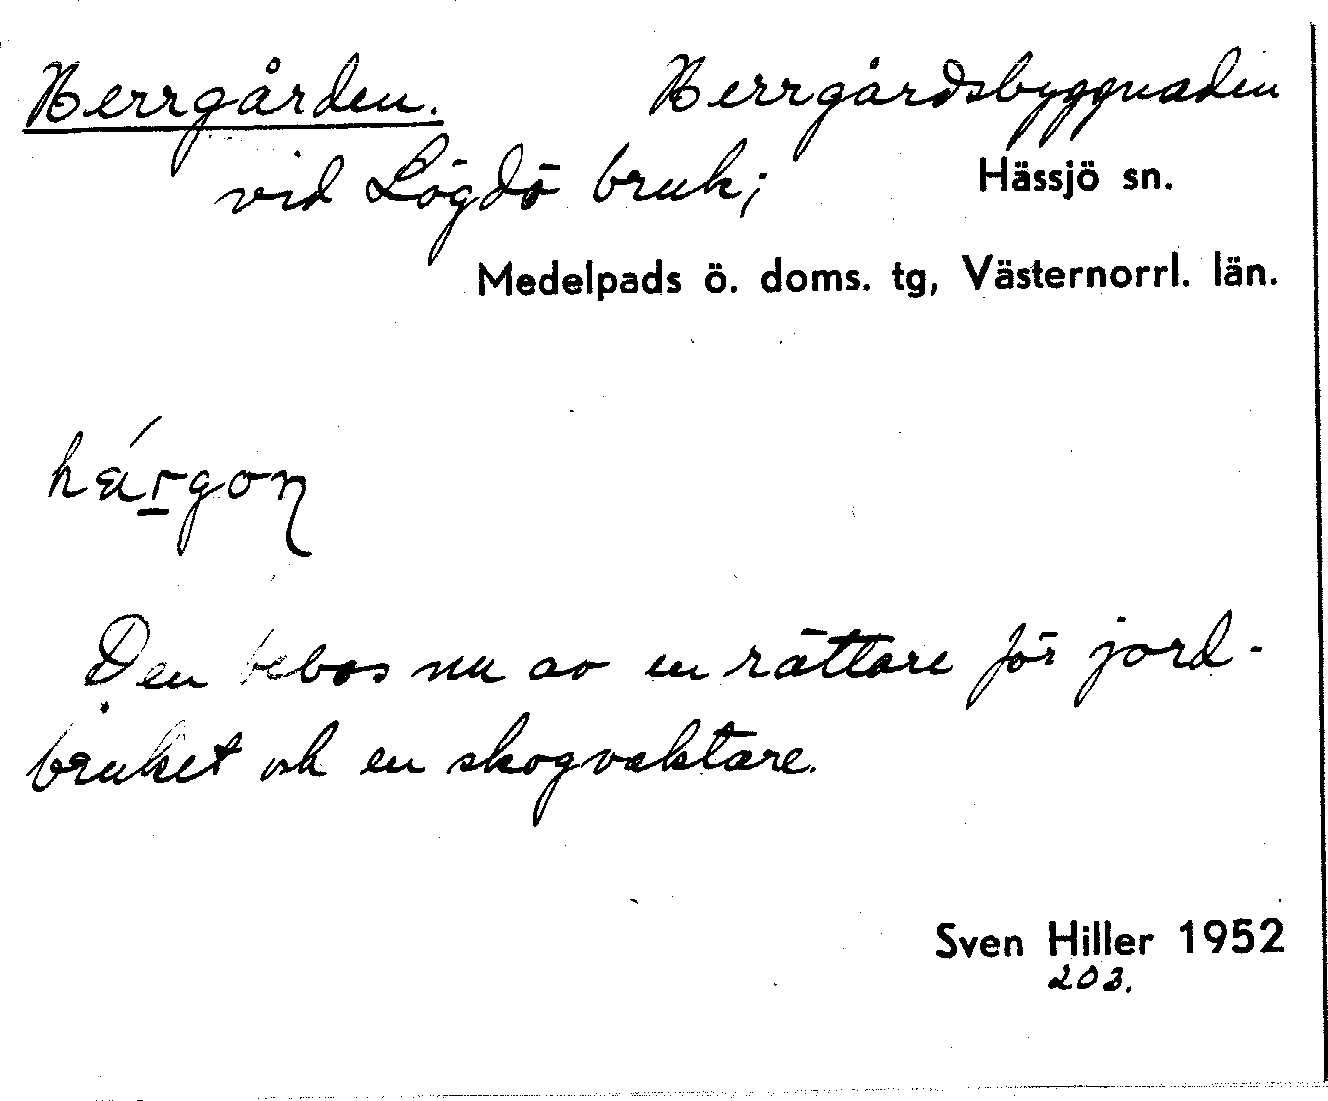 Herrgården. Herrgårdsbyggnaden
vid Lögdö bruk; Hässjö sn.
Medelpads ö. doms. tg, Västernorrl. län.
Den bebos nu av en rättare för jord-
bruket och en skogvaktare.
Sven Hiller 1952
203.